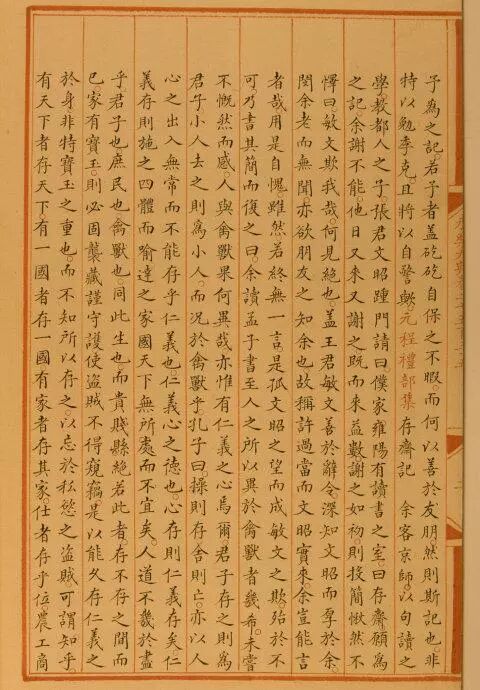 子為之記。若子者盖矻矻自保之不暇。而何以善於友朋。然則斯記也。非
特以勉季克且將以自警與。元程禮部集存齋記 余客京師以句讀之
學。教都人之子。張君文昭踵門請曰。僕家雍陽有讀書之室。曰存齋。願為
之記。余謝不能。他日又來又謝之。既而來益數。謝之如初。則投簡愀然不
懌曰。敏文欺我哉。何見絶也。盖王君敏文善於辭令。深知文昭而孚於余。
閔余老而無聞。亦欲朋友之知余也。故稱許過當。而文昭實來。余豈能言
者哉。用是自愧。雖然若終無一言。是孤文昭之望。而成敏文之欺。殆於不
可。乃書其簡而復之曰。余讀孟子書。至人之所以異於禽獸者幾希。未嘗
不慨然而感。人與禽獸果何異哉。亦惟有仁義之心焉爾。君子存之則為
君子。小人去之則為小人。而況於禽獸乎。孔子曰。操則存舍則亡。亦以人
心之出入無常而不能存乎仁義也。仁義心之德也。心存則仁義存矣。仁
義存則施之四體而喻。達之家國天下無所處而不宜矣。人道不幾於盡
乎。君子也。庶民也。禽獸也。同此生也。而貴賤縣絶若此者。存不存之間而
已。家有寶玉。則必固襲藏謹守護。使盜賊不得窺竊。是以能久存。仁義之
於身非特寶玉之重也。而不知所以存之。以忘於私慾之盜賊。可謂知乎。
有天下者存天下。有一國者存一國。有家者存其家。仕者存乎位。農工商